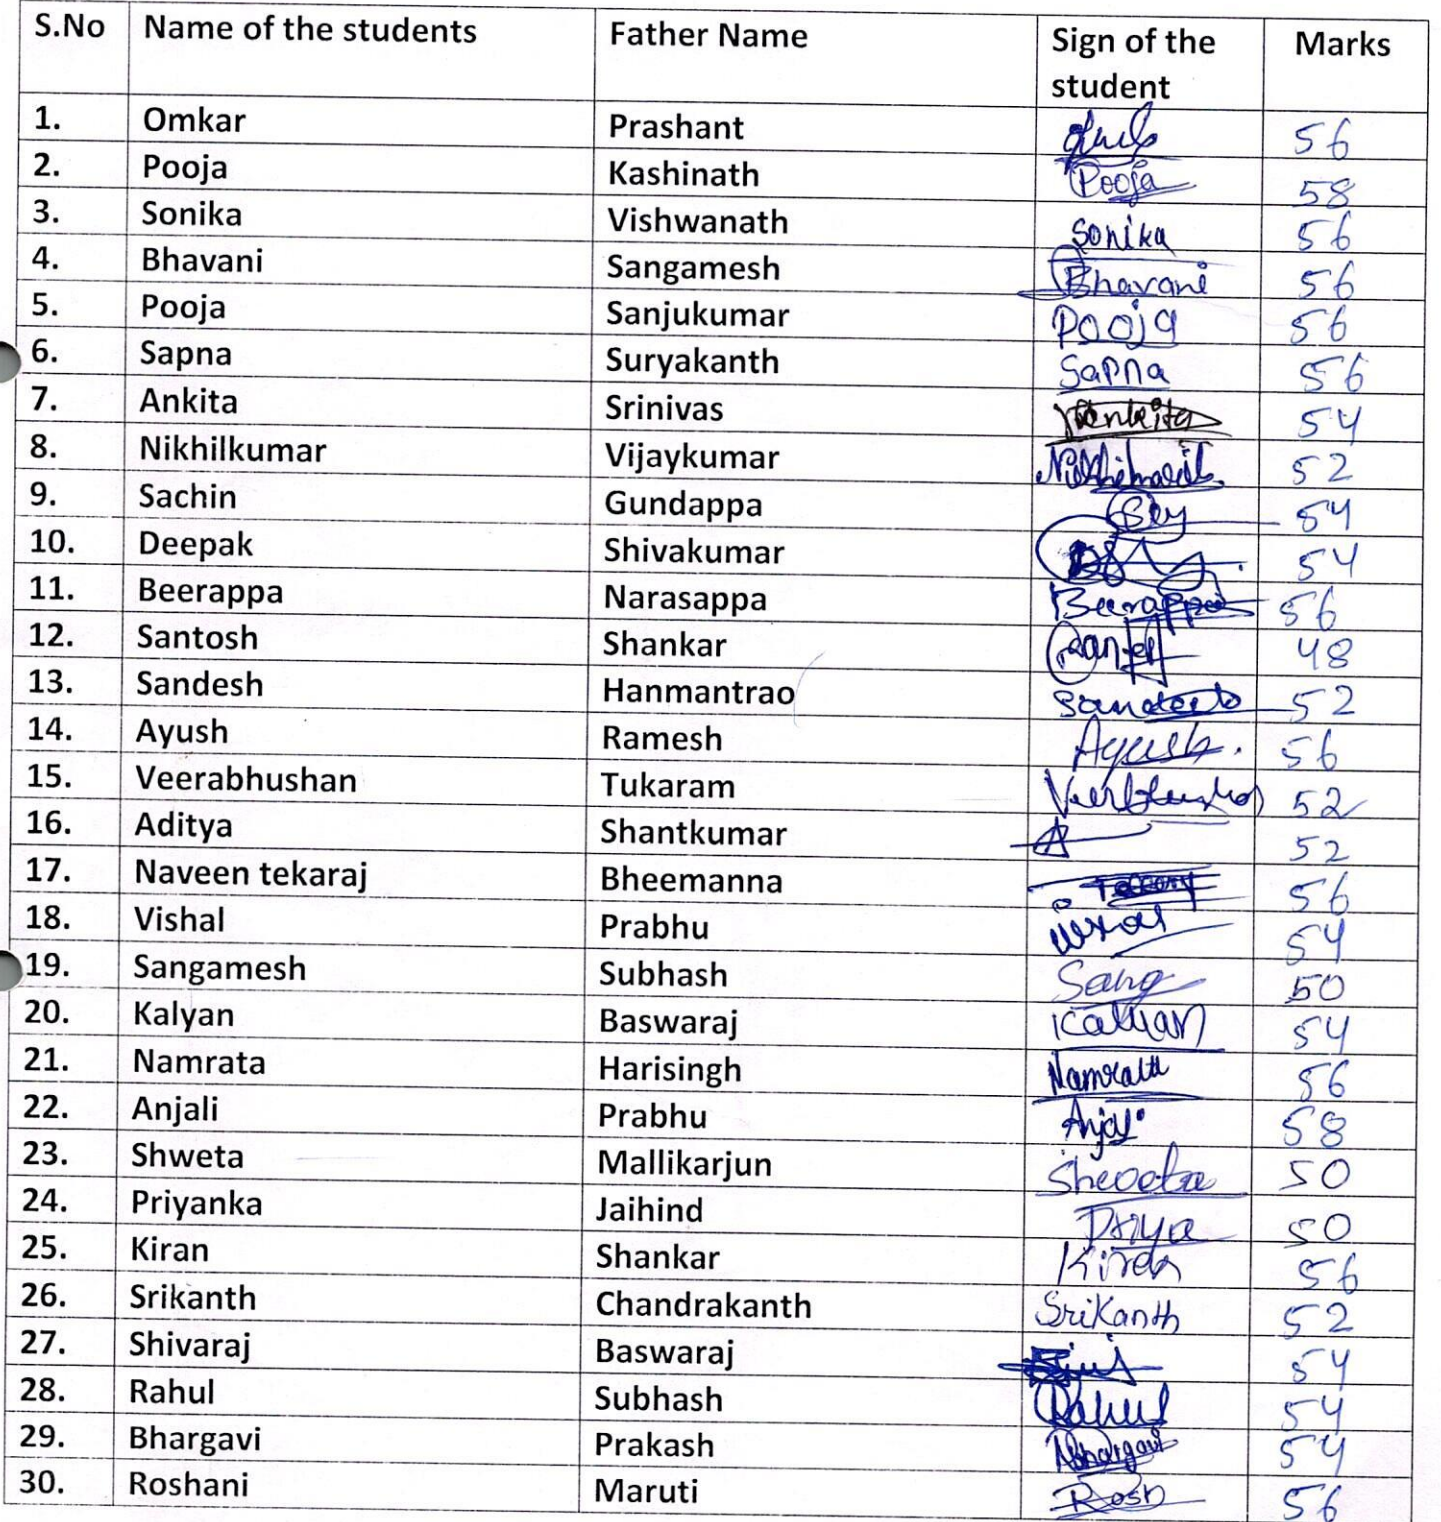 S.No Name of the students Father Name Sign of the student Marks
1. Omkar Prashant 56
2. Pooja Kashinath Pooja 58
3. Sonika Vishwanath Sonika 56
4. Bhavani Sangamesh Bhavani 56
5. Pooja Sanjukumar Pooja 56
6. Sapna Suryakanth Sapna 56
7. Ankita Srinivas Ankita 54
8. Nikhilkumar Vijaykumar 52
9. Sachin Gundappa 54
10. Deepak Shivakumar 54
11. Beerappa Narasappa Beerappa 56
12. Santosh Shankar 48
13. Sandesh Hanmantrao 52
14. Ayush Ramesh Ayush. 56
15. Veerabhushan Tukaram 52
16. Aditya Shantkumar A 52
17. Naveen tekaraj Bheemanna 56
18. Vishal Prabhu 54
19. Sangamesh Subhash Sang 50
20. Kalyan Baswaraj Kalyan 54
21. Namrata Harisingh 56
22. Anjali Prabhu 58
23. Shweta Mallikarjun Shweta 50
24. Priyanka Jaihind Priya 50
25. Kiran Shankar Kiran 56
26. Srikanth Chandrakanth SriKanth 52
27. Shivaraj Baswaraj 54
28. Rahul Subhash Rahul 54
29. Bhargavi Prakash Bhargavi 54
30. Roshani Maruti Rosh 56